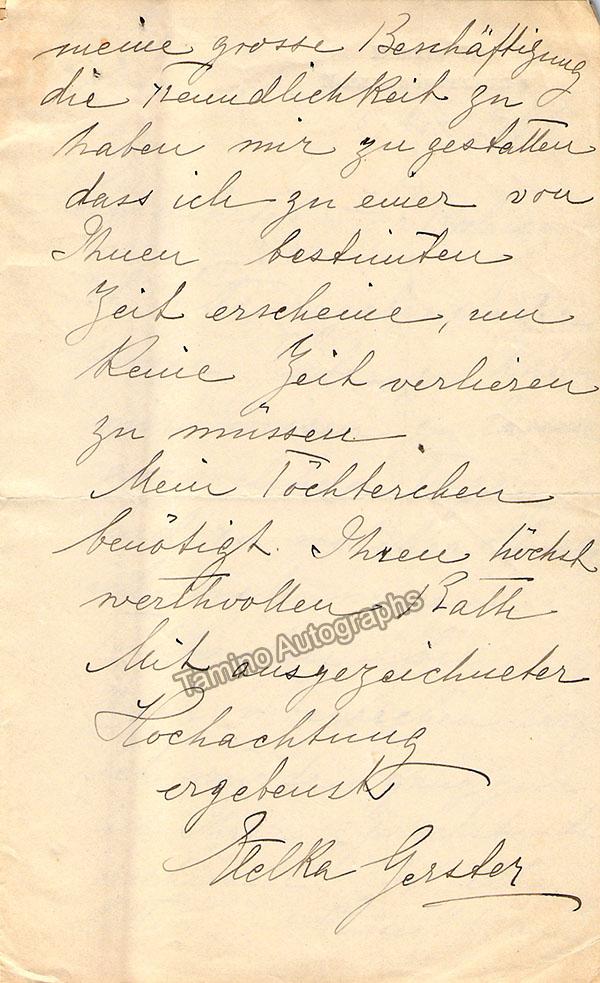 meine grosse Beschäftigung
die Freundlichkeit zu
haben mir zu gestatten
dass ich zu einer von
Ihnen bestimten
Zeit erscheine, um
keine Zeit verlieren
zu müssen.
Mein Töchterchen
benötigt Ihren höchst
werthvollen Rath
Mit ausgezeichneter
Hochachtung
ergebenst
Etelka Gerster
Tamino Autographs